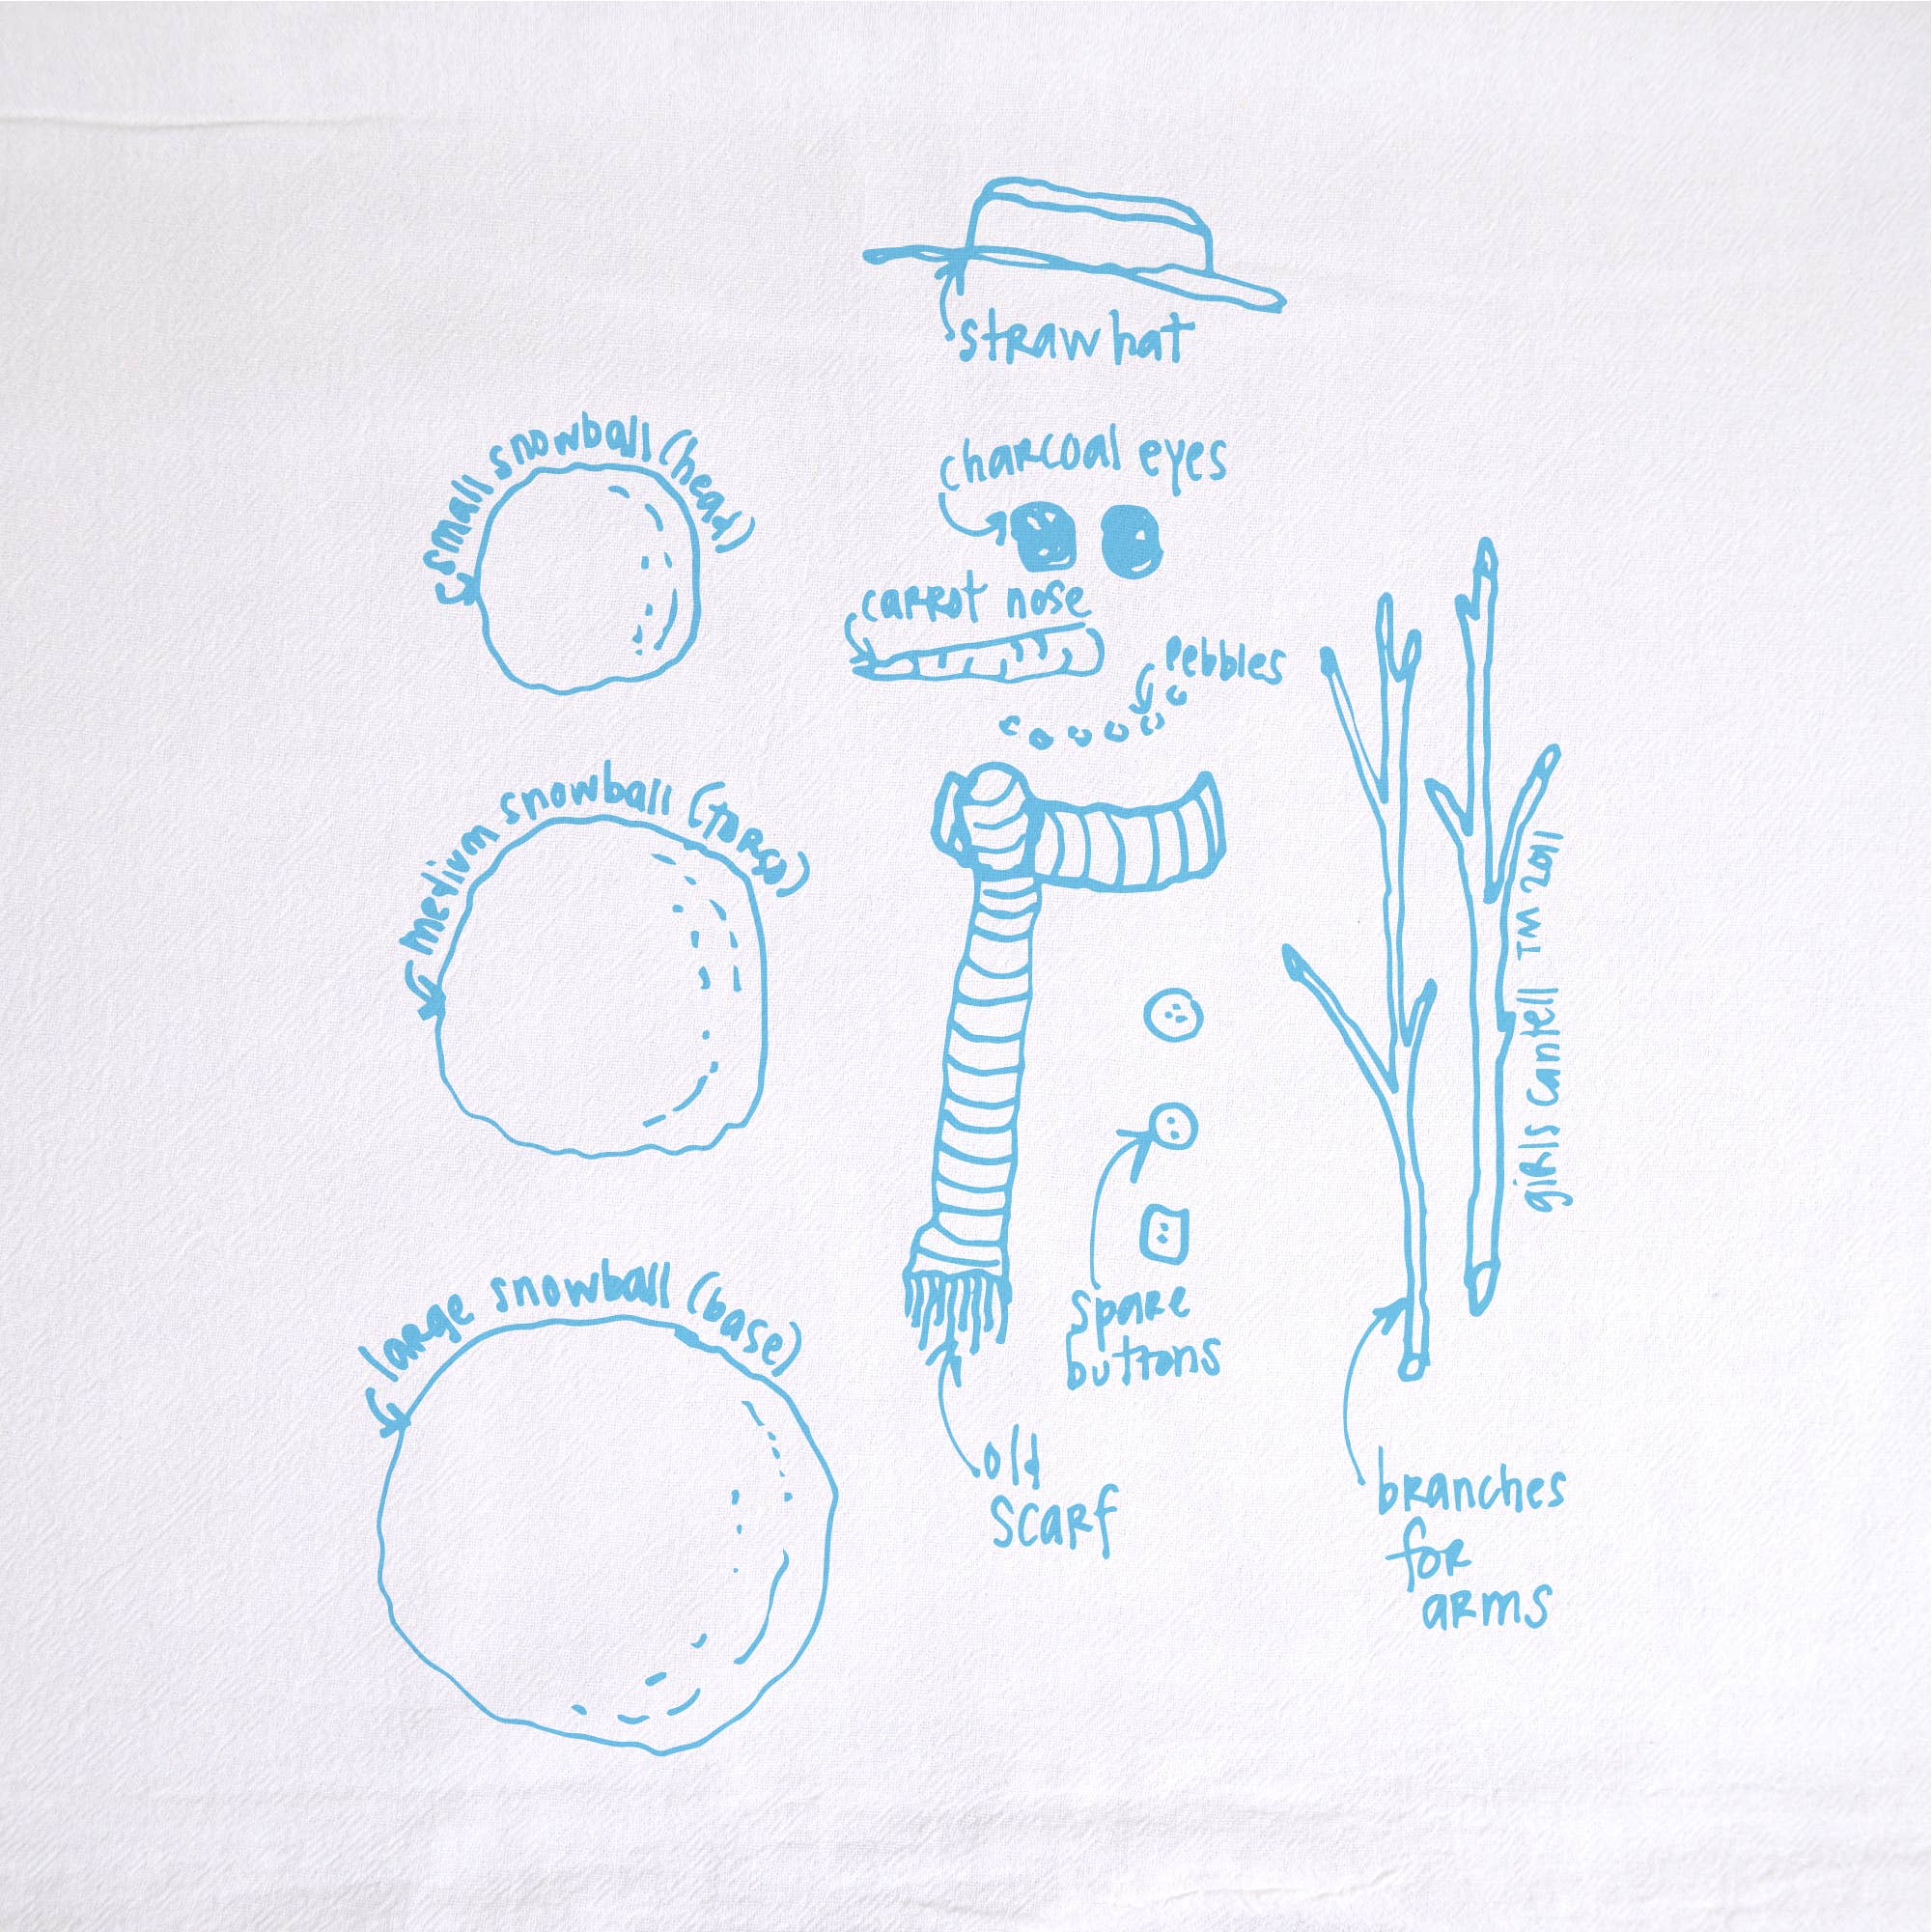 straw hat
small snowball (head)
charcoal eyes
carrot nose
pebbles
medium snowball (torso)
girls can tell TM 2011
large snowball (base)
spare
buttons
old
scarf
branches
for
arms